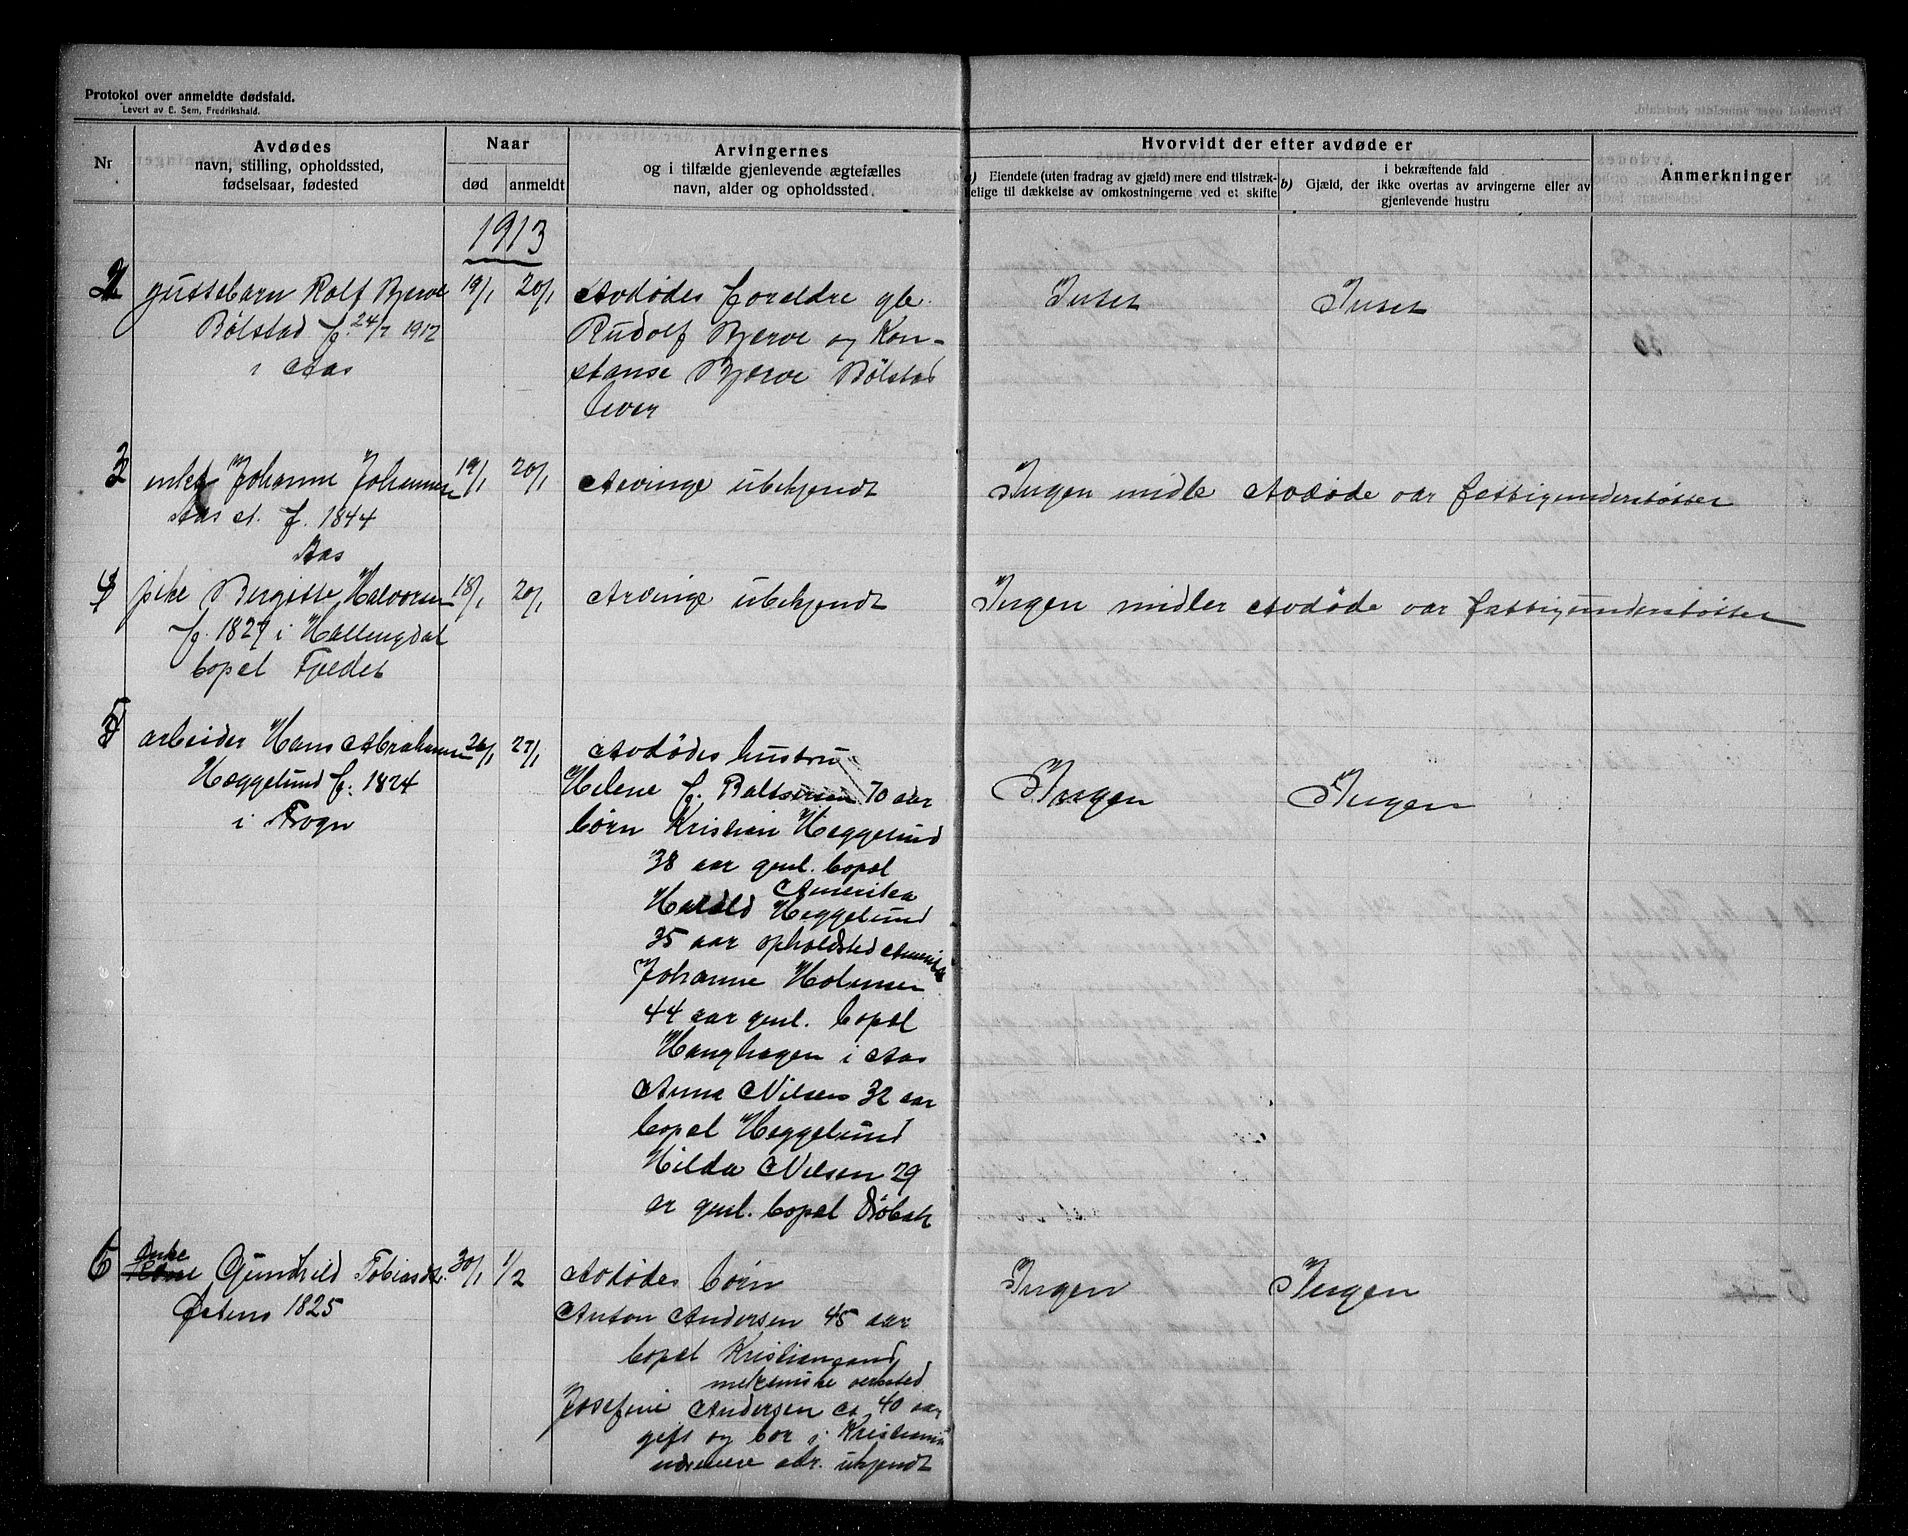 Protokol over anmeldte dødsfald.
Levert av E. Sem, Fredrikshald.
Nr
Avdødes
navn, stilling, opholdssted,
fødselsaar, fødested
Naar
død
anmeldt
Arvingernes
og i tilfælde gjenlevende ægtefælles
navn, alder og opholdssted.
Hvorvidt der efter avdøde er
a) Eiendele (uten fradrag av gjæld) mere end tilstræk-
kelige til dækkelse av omkostningerne ved et skifte
b)
i bekræftende fald
Gjæld, der ikke overtas av arvingerne eller av
gjenlevende hustru
Anmerkninger
1913
2 guttebarn Rolf Bjerve 19/1 20/1 Avdødes foreldre gb. Intet Intet
Bølstad f. 24/7 1912 Rudolf Bjerve og Kon-
i Aas stanse Bjerve Bølstad
lever
3 enke Johanne Johannesen 19/1 20/1 Arvinge ubekjendt Ingen midle Avdøde var fattigunderstøttet
Aas st. f. 1844
Aas
4 pike Bergitte Halvorsen 18/1 20/1 Arvinge ubekjendt Ingen midler Avdøde var fattigunderstøttet
f. 1827 i Hallingdal
bopel Fjeldet
5 arbeider Hans Abrahamsen 26/1 27/1 Avdødes hustru
Heggelund f. 1824 Helene f. Baltsersen 70 aar Ingen Ingen
i Frogn børn Kristian Heggelund
38 aar genl. bopel
Amerika
Harald Heggelund
35 aar opholdsted Amerika
Johanne Holmsen
44 aar genl. bopel
Hanghagen i Aas
Anna Nilsen 32 aar
bopel Heggelund
Hilda Nilsen 29
ar genl. bopel Drøbak
6 Enke Gundhild Tobiasdtr. 30/1 1/2 Avdødes børn Ingen Ingen
1825 Anton Andersen 45 aar
bopel Kristiansand
mekaniske verksted
Josefine Andersen ca 40 aar
gift og bor i Kristiania
nærmere adr. ukjendt